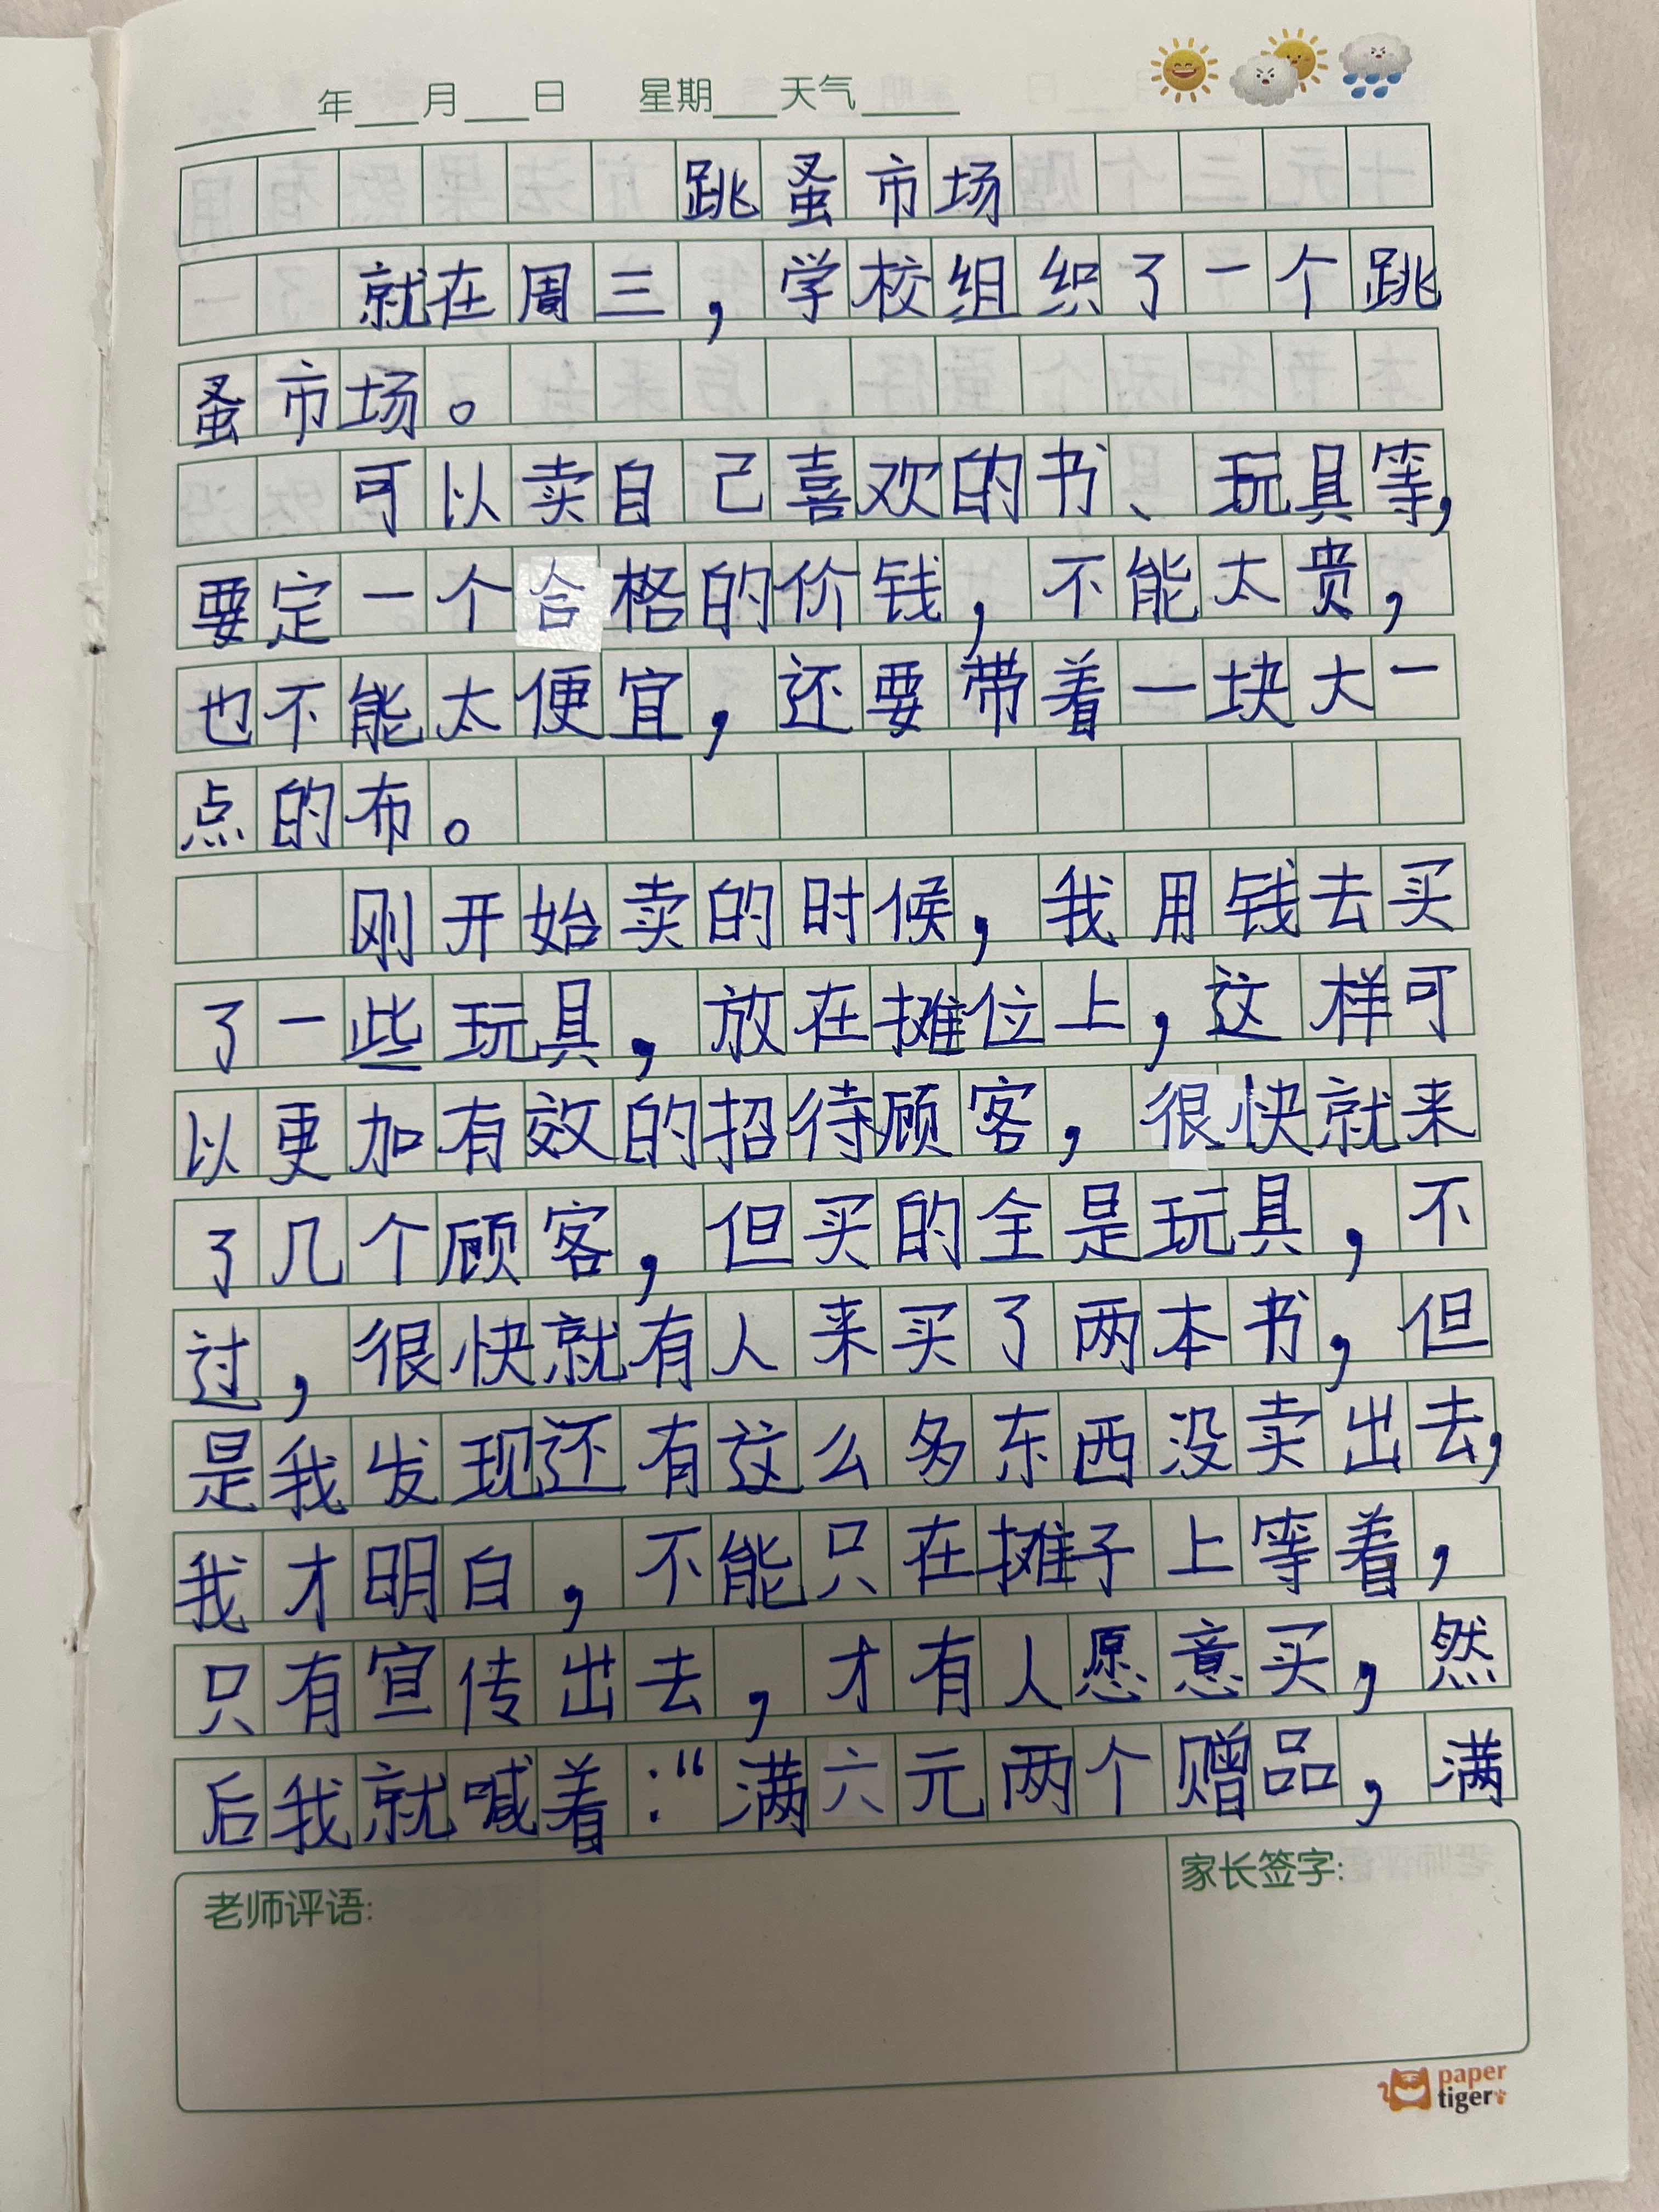 ____年___月___日 星期___天气____
跳蚤市场
就在周三，学校组织了一个跳
蚤市场。
可以卖自己喜欢的书、玩具等，
要定一个合格的价钱，不能太贵，
也不能太便宜，还要带着一块大一
点的布。
刚开始卖的时候，我用钱去买
了一些玩具，放在摊位上，这样可
以更加有效的招待顾客，很快就来
了几个顾客，但买的全是玩具，不
过，很快就有人来买了两本书，但
是我发现还有这么多东西没卖出去，
我才明白，不能只在摊子上等着，
只有宣传出去，才有人愿意买，然
后我就喊着：“满六元两个赠品，满
老师评语:
家长签字:
paper
tiger